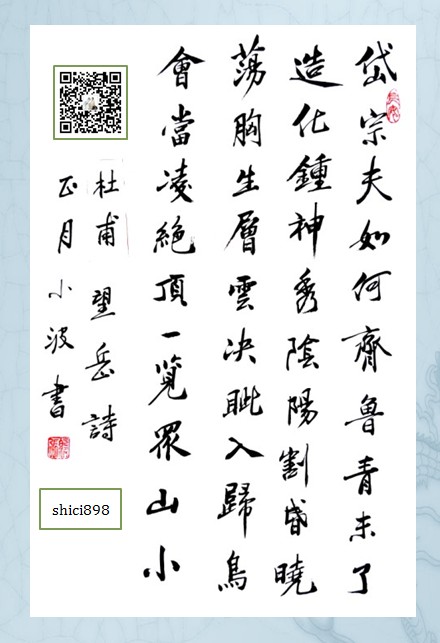 岱宗夫如何齊魯青未了
造化鍾神秀陰陽割昏曉
蕩胸生層雲决眦入歸鳥
會當凌絕頂一覽眾山小
杜甫望岳詩
正月小波書
shici898